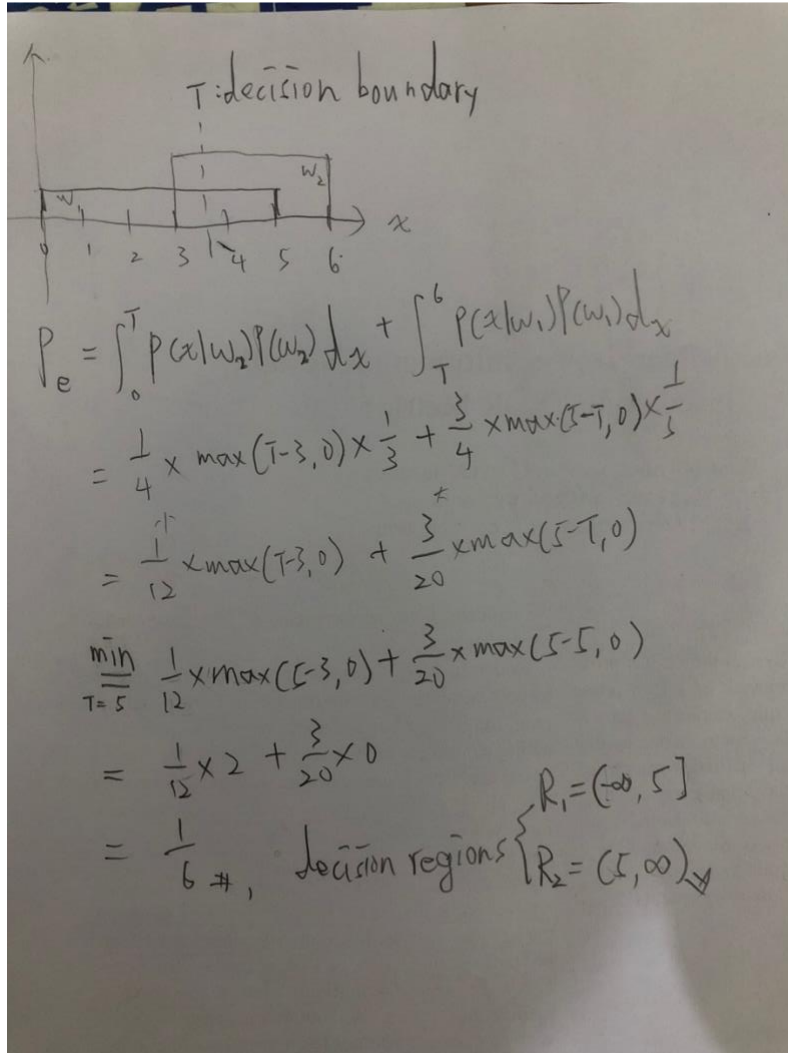 T:decision boundary
w₁
w₂
0 1 2 3 4 5 6
x
Pe = ∫₀ᵀ p(x|w₂)P(w₂)dx + ∫_T⁶ P(x|w₁)P(w₁)dx
= 1/4 × max(T-3,0) × 1/3 + 3/4 × max(5-T,0) × 1/5
= 1/12 × max(T-3,0) + 3/20 × max(5-T,0)
min = T=5 1/12 × max(5-3,0) + 3/20 × max(5-5,0)
= 1/12 × 2 + 3/20 × 0
= 1/6 #, decision regions { R₁ = (-∞, 5]
R₂ = (5, ∞) #